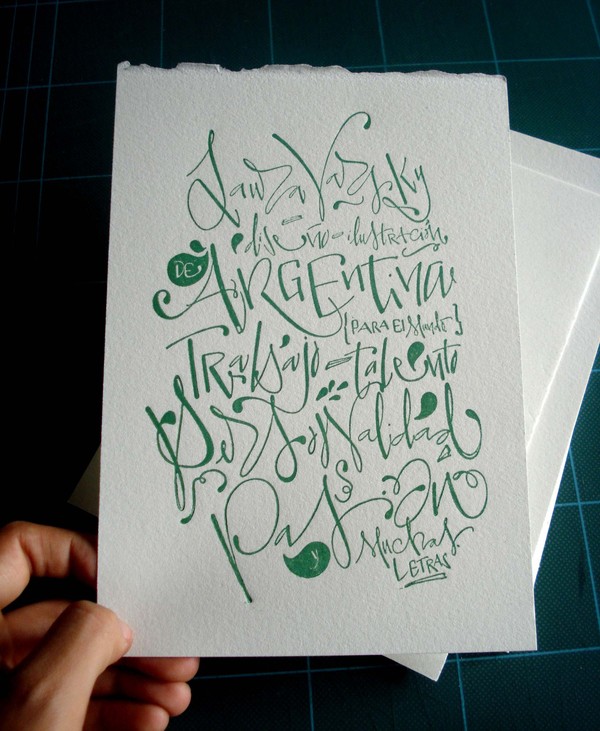 Laura Varsky
diseño-ilustración
DE ARGEntina
{PARA El Mundo}
TRabajo-talento
PersoNalidad
PasióN
y Muchas
LETRAS